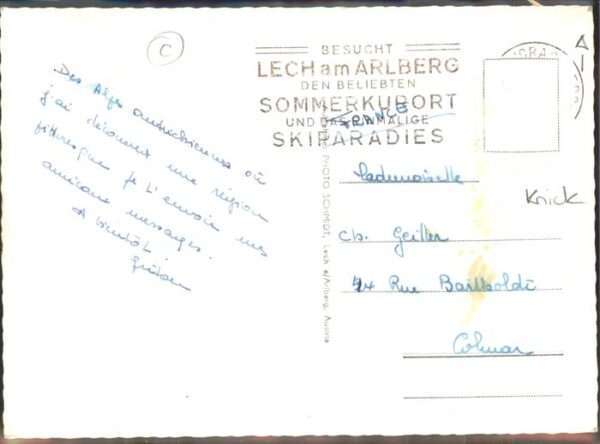 C
BESUCHT
LECH am ARLBERG
DEN BELIEBTEN
SOMMERKURORT
UND DAS EINMALIGE
SKIPARADIES
FRANCE
Des Alpes autrichiennes où
j'ai découvert une région
pittoresque je t'envoie mes
amicaux messages.
A bientôt
Mademoiselle
Ch. Geiller
Rue Bartholdi
Colmar
Knick
PHOTO SCHMIDT, Lech a/Arlberg, Austria